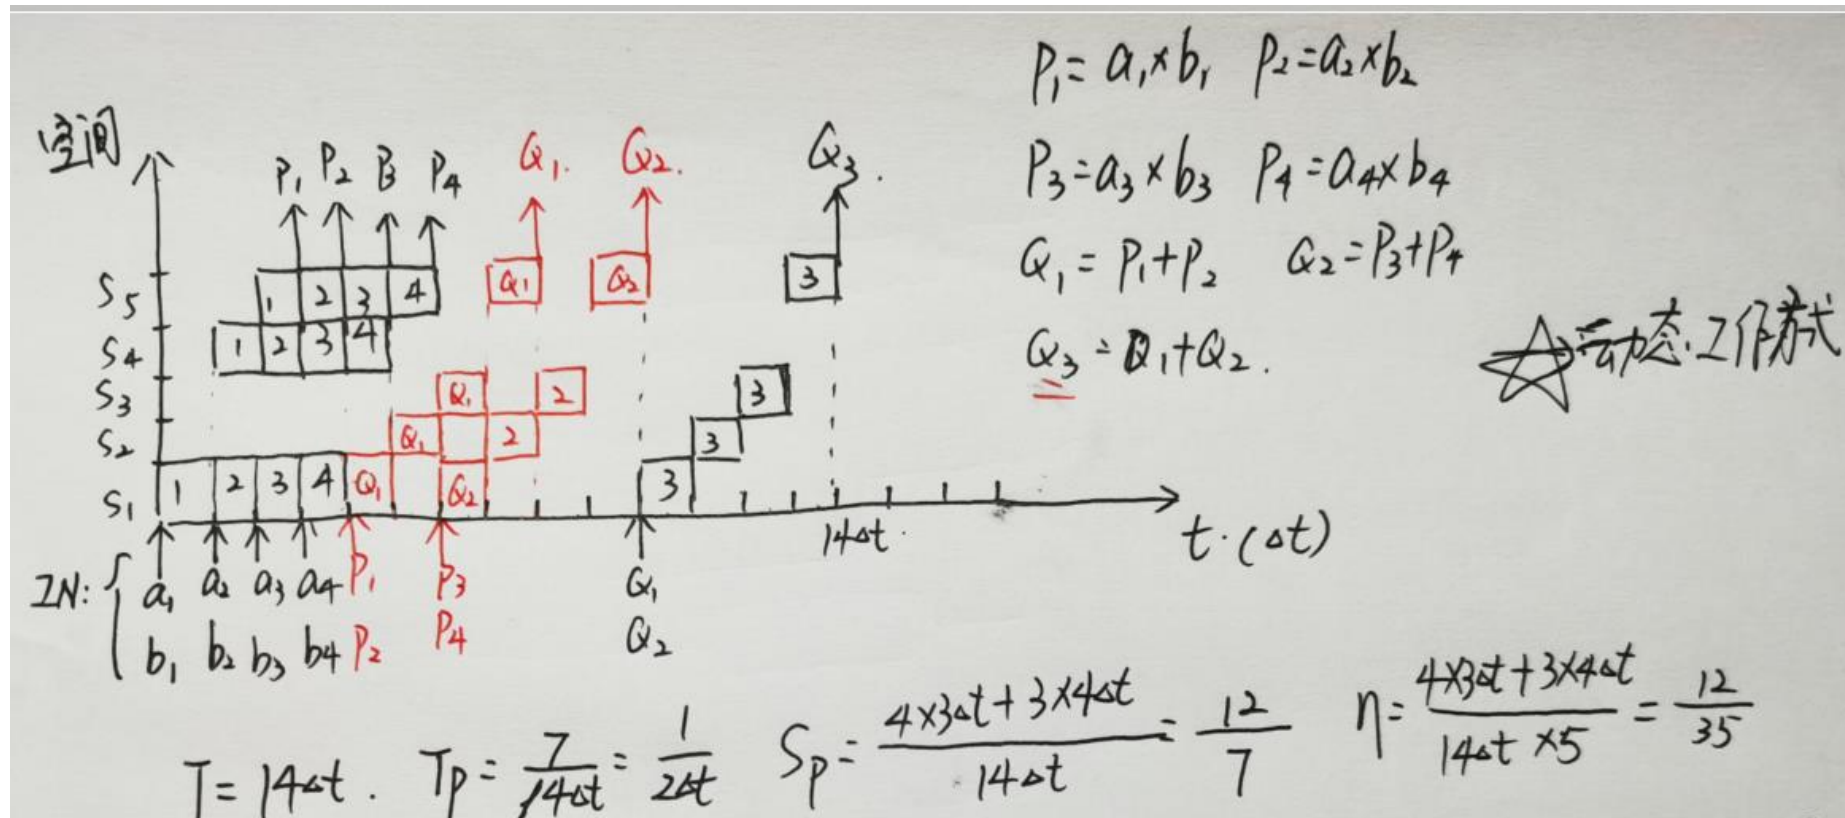 P₁=a₁×b₁ P₂=a₂×b₂
P₃=a₃×b₃ P₄=a₄×b₄
Q₁=P₁+P₂ Q₂=P₃+P₄
Q₃=Q₁+Q₂.
动态工作方式
空间
P₁ P₂ P₃ P₄ Q₁. Q₂. Q₃.
S₅ 1 2 3 4 Q₁ Q₂ 3
S₄ 1 2 3 4
S₃ Q₁ 2 3
S₂ Q₁ 2 3
S₁ 1 2 3 4 Q₁ Q₂ 3
14Δt. t.(Δt)
IN: a₁ a₂ a₃ a₄ P₁ P₃ Q₁
b₁ b₂ b₃ b₄ P₂ P₄ Q₂
T=14Δt. Tp=7/14Δt=1/2Δt Sp=(4×3Δt+3×4Δt)/14Δt=12/7 η=(4×3Δt+3×4Δt)/(14Δt×5)=12/35